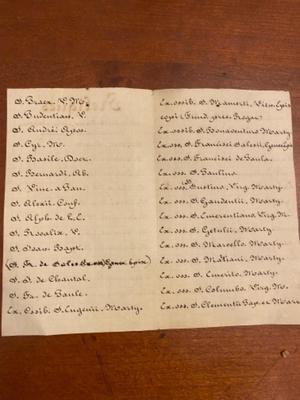 S. Prax. V. M.
S. Pudentian. V.
S. André Apos.
S. Cyr. M.
S. Basile. Doct.
S. Bernardi, Ab.
S. Vinc. a
S. Alexii. Conf.
S. Alph. de L.
S. Rosaliæ. V.
S. Joan. Bapt.
(S. Fr. de Sales
S. J. de Chantal.
S. Fr. de Paule.
Ex. Ossib. S. Eugenii. Marty.
Ex. ossib. S. Mamerti,
Ex. ossib. S. Bonaventuro Marty.
Ex. oss. S. Francisci Salesii,
Ex. oss. S. Francisci de Paula.
Ex. oss. S. Paulino
Ex. oss. Virg. Marty.
Ex. oss. S. Gaudentii, Marty.
Ex. oss. S. Emerentiana Virg. M.
Ex. oss. S. Getulii, Marty.
Ex. oss. S. Marcello. Marty.
Ex. oss. S. Marty.
Ex. oss. S. Emerito. Marty.
Ex. oss. S. Columba. Virg. M.
Ex. oss. S. Clementii Pap. et Mar